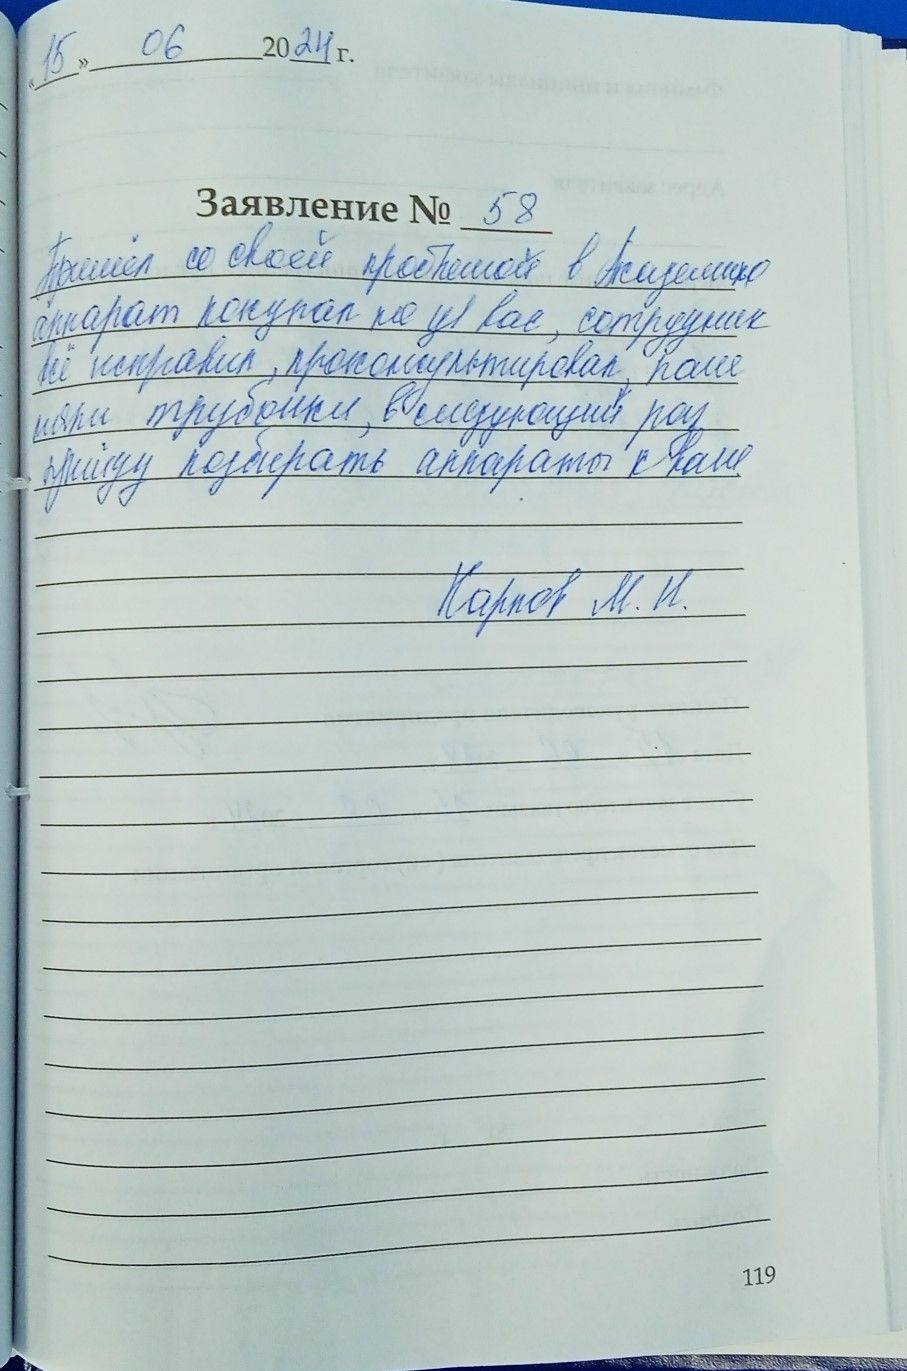 «15» 06 2024 г.
Заявление № 58
Пришёл со своей проблемой в Академию
аппарат покупал не у вас, сотрудник
всё исправил, проконсультировал, поме
няли трубочки, в следующий раз
прийду подбирать аппараты к вам
Карпов М. Н.
119